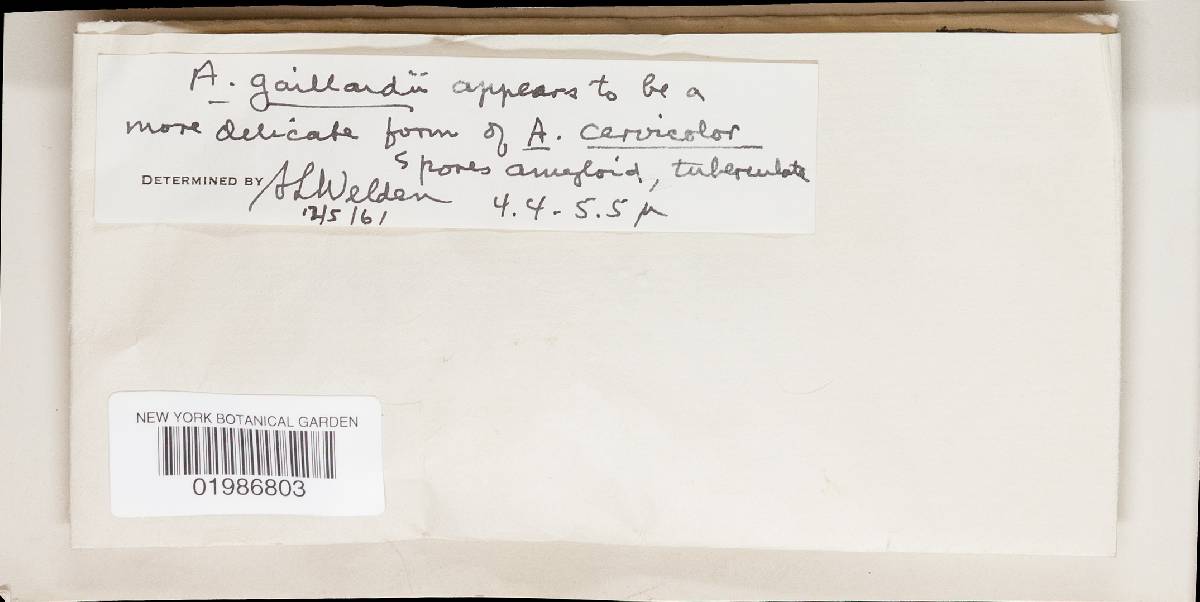 A. gaillardii appears to be a
more delicate form of A. cervicolor
spores amyloid, tuberculate
DETERMINED BY A L Welden 4.4-5.5 μ
12/5/61
NEW YORK BOTANICAL GARDEN
01986803